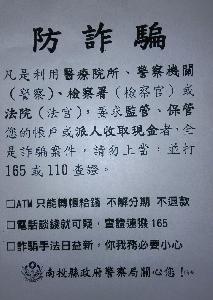 防詐騙
凡是利用醫療院所、警察機關
（警察）、檢察署（檢察官）或
法院（法官），要求監管、保管
您的帳戶或派人收取現金者，全
是詐騙案件，請勿上當，並打
165 或 110 查證。
□ATM 只能轉帳給錢 不解分期 不退款
□電話談錢就可疑，查證速撥 165
□詐騙手法日益新，你我務必要小心
南投縣政府警察局關心您！